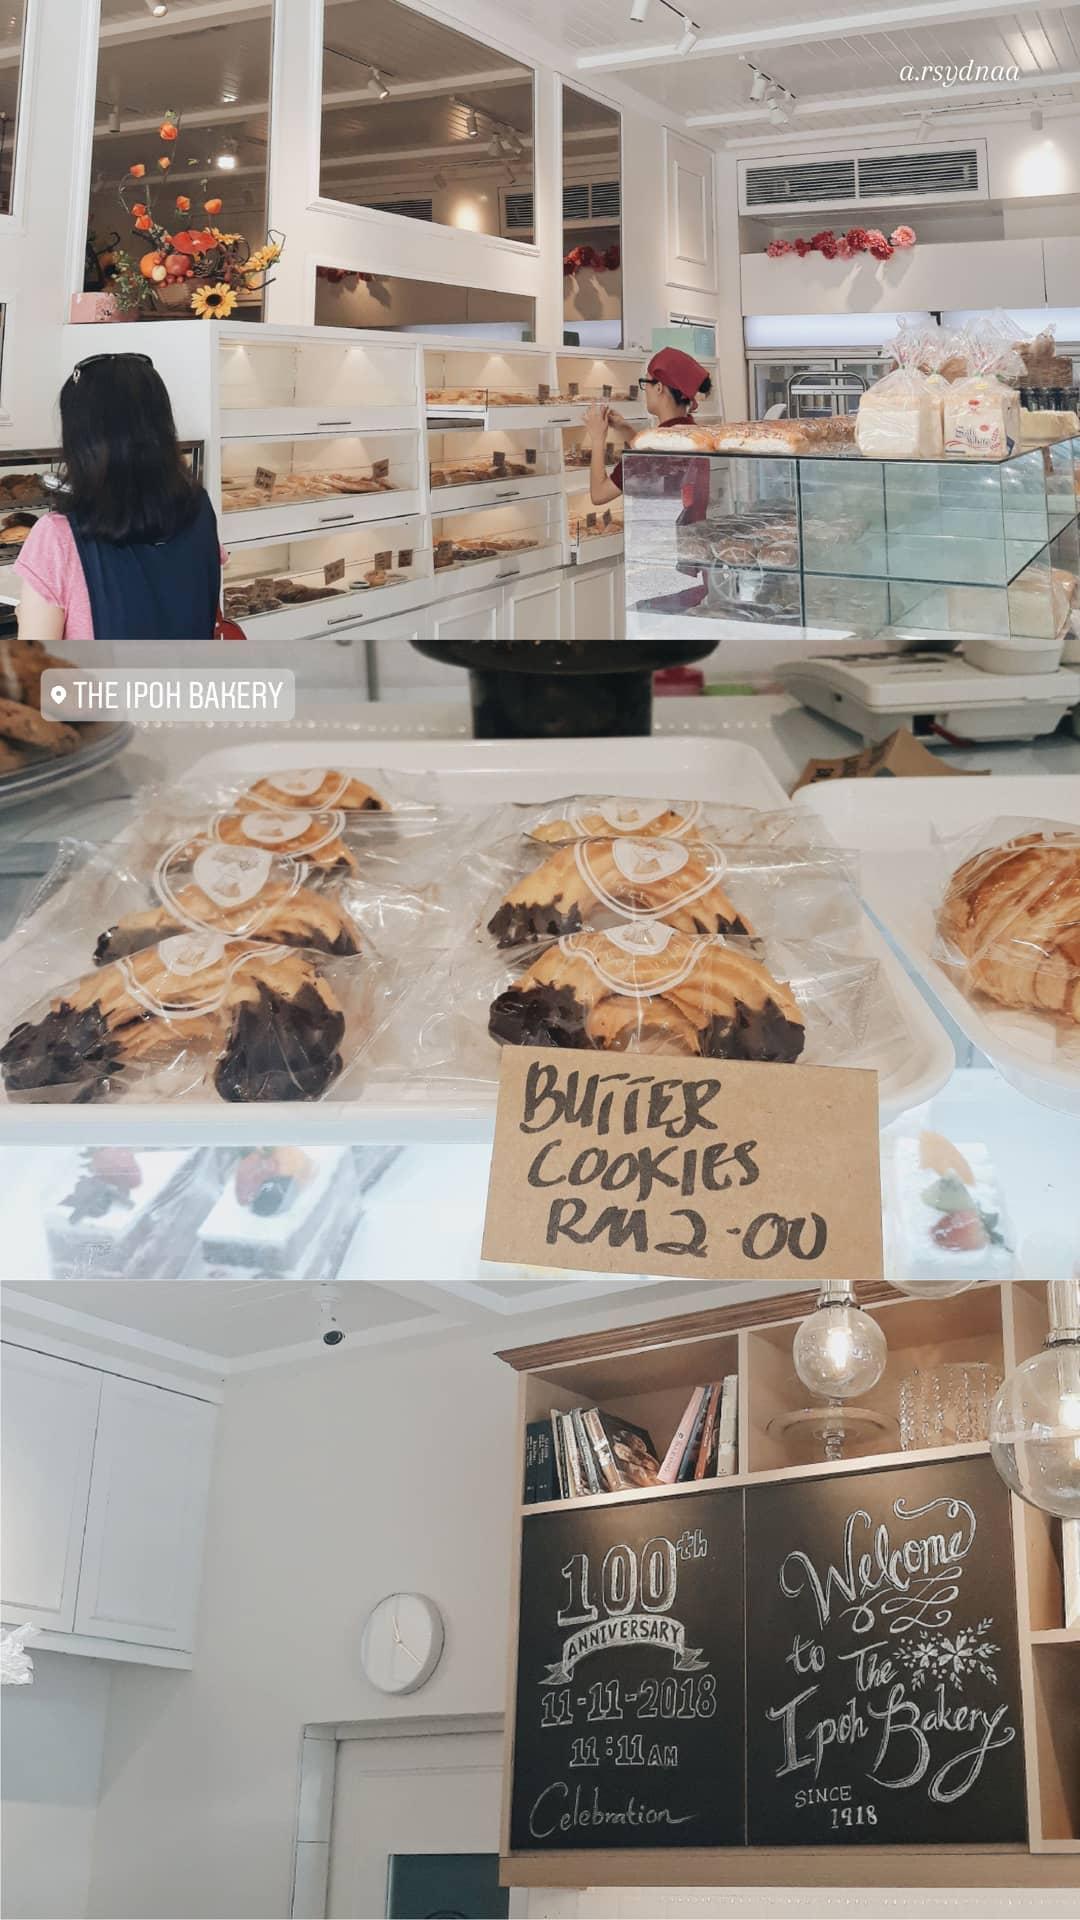 a.rsydnaa
THE IPOH BAKERY
BUTTER
COOKIES
RM2-00
100th
ANNIVERSARY
11-11-2018
11:11AM
Celebration
Welcome
to The
Ipoh Bakery
SINCE
1918